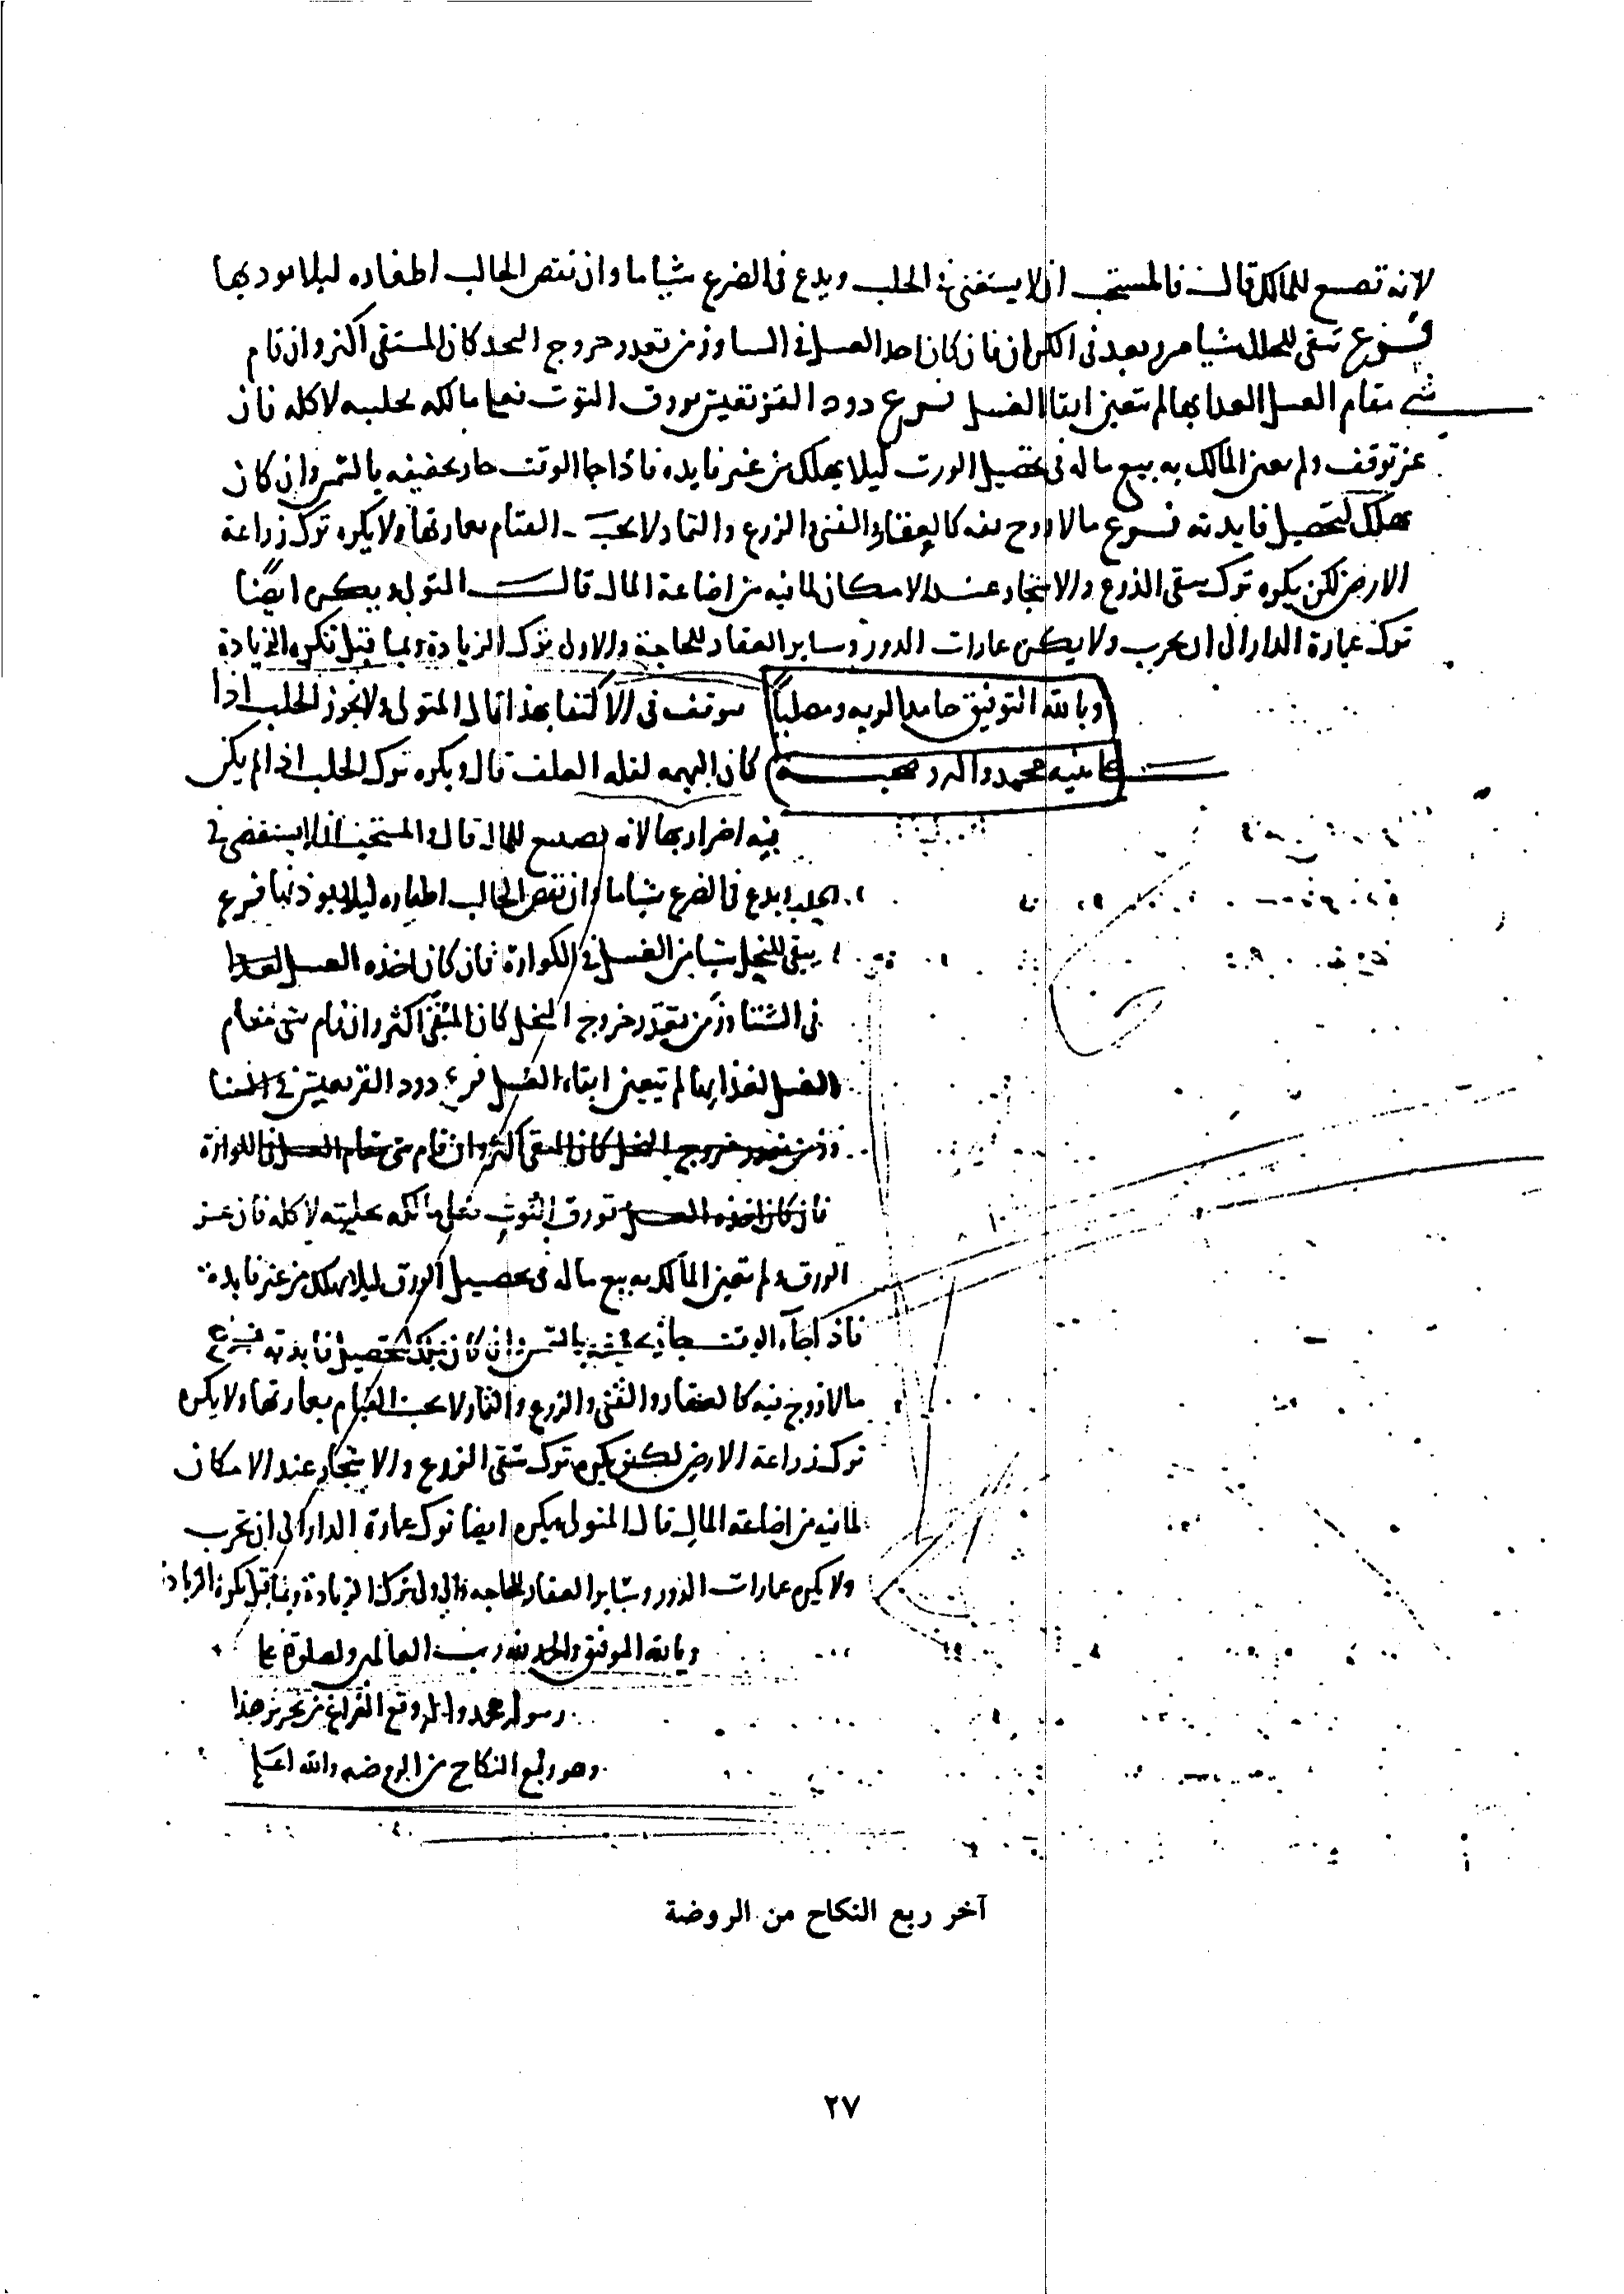 لانه تضييع للمال قال فالمستحب ان لا يستقصى فى الحلب ويدع فى الضرع شيا ما وان نقص الحالب اظفاره ليلا يوديها
فرع تبقى للنحل شيا من فى الكوارة فان كان اخذ العسل فى الشتا وزمن تعدر خروج النحل كان المستبقى اكثر وان قام
شى مقام العسل لغدايها لم يتعين ابقا العسل فرع دود القز تعيش بورق التوت فعلى مالكه تحليته لاكله فان
عز توقف ولم يعن المالك به بيع ماله فى تحصيل الورق ليلا يهلك من غير فايده فاذا جا الوقت جاز تجفيفه بالشمس وان كان
يهلك لتحصيل فايدته فرع مالا روح فيه كالعقار والقنى والزرع والثمار لا يجب القيام بعمارتها ولا يكره ترك زراعة
الارض لكن يكره ترك سقى الزرع والاشجار عند الامكان لما فيه من اضاعة المال قال المتولى ويكره ايضا
ترك عمارة الدار الى ان يخرب ولا يكره عمارات الدور وساير العقار للحاجة والاولى ترك الزيادة وربما قيل تكره الزيادة
وبالله التوفيق حامدا لربه ومصليا يتوقف فى الاكتفا بهذا قال المتولى ولا يجوز الحلب اذا
على نبيه محمد واله وصحبه كان البهيمه لقله العلف قال ويكره ترك الحلب اذا لم يكن
فيه اضرار بها لانه تضييع للمال قال والمستحب ان لا يستقصى فى
الحلب ويدع فى الضرع شيا ما وان نقص الحالب اظفاره ليلا يوذيها فرع
يبقى للنحل شيا من العسل فى الكوارة فان كان اخذه العسل
فى الشتا وزمن تعذر خروج النحل كان المبقى اكثر وان قام شى مقام
العسل لغذايها لم يتعين ابقاء العسل فرع دود القز تعيش
وزمن تعذر خروج النحل كان المبقى اكثر وان قام شى مقام العسل فى الكوارة
فان كان اخذه العسل بورق التوت فعلى مالكه تحليته لاكله فان عز
الورق ولم يعن المالك به بيع ماله فى تحصيل الورق ليلا يهلك من غير فايدة
فاذا جاء الوقت جاز تجفيفه بالشمس وان كان يهلك لتحصيل فايدته فرع
مالا روح فيه كالعقار والقنى والزرع والثمار لا يجب القيام بعمارتها ولا يكره
ترك زراعة الارض لكن يكره ترك سقى الزرع والاشجار عند الامكان
لما فيه من اضاعة المال قال المتولى ويكره ايضا ترك عمارة الدار الى ان تخرب
ولا يكره عمارات الدور وساير العقار للحاجه والاولى ترك الزيادة وربما قيل يكره الزيادة
وبالله الموفق والحمد لله رب العالمين وصلوته على
رسوله محمد واله وقع الفراغ من تحرير هذا
وهو ربع النكاح من الروضه والله اعلم
آخر ربع النكاح من الروضة
٢٧